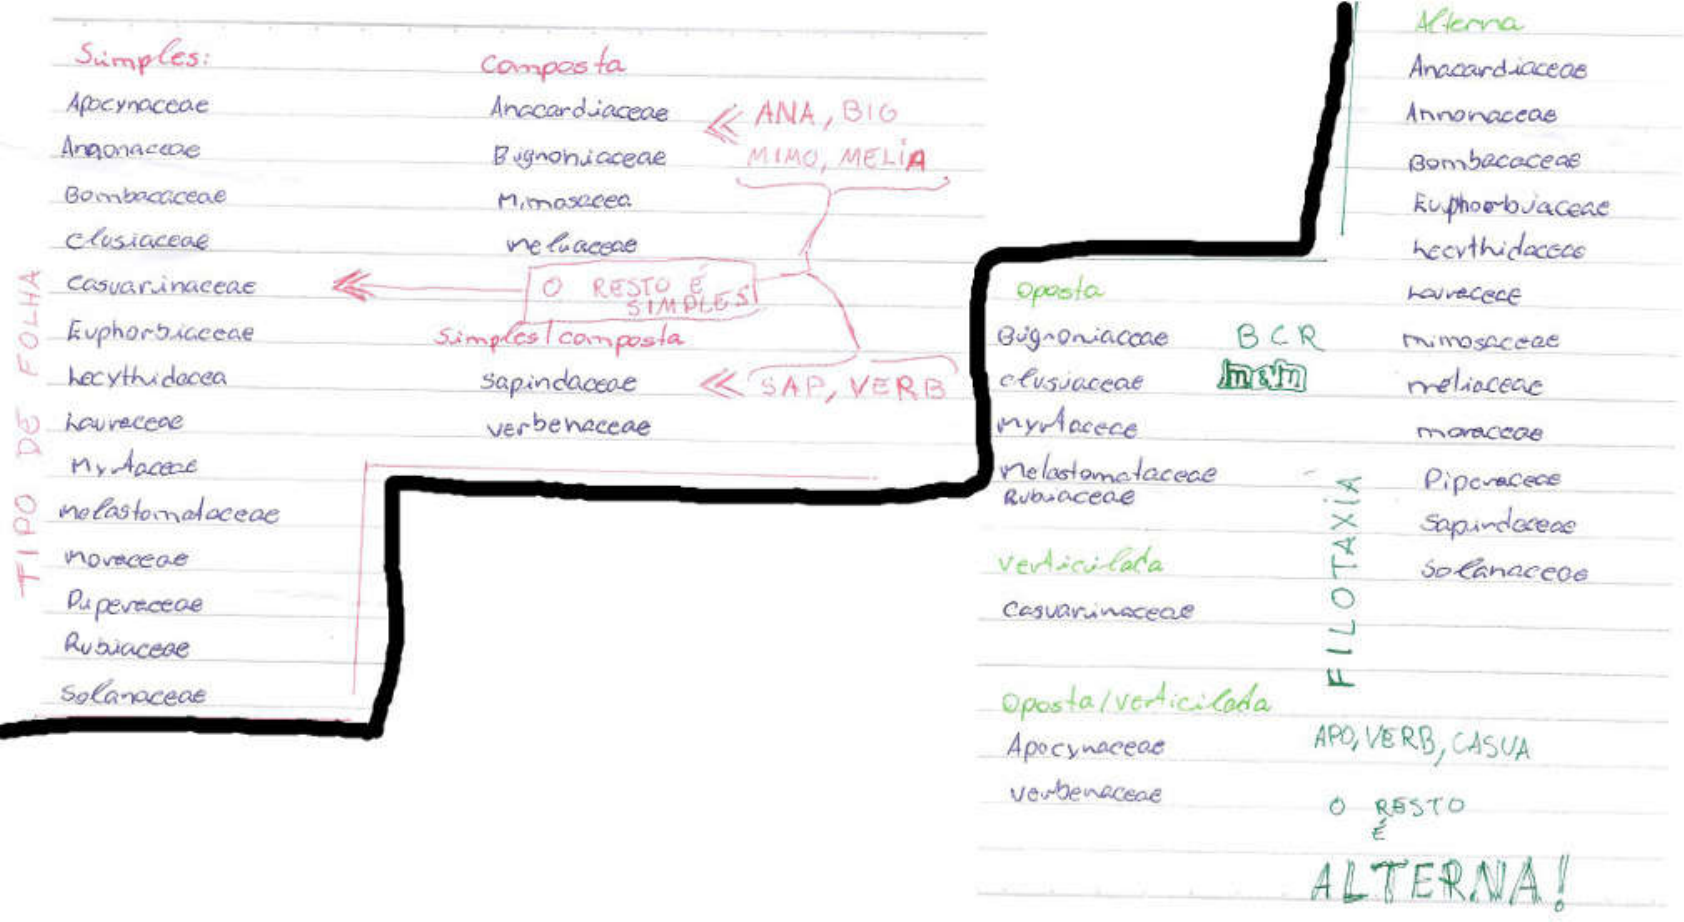 TIPO DE FOLHA
Simples:
Apocynaceae
Annonaceae
Bombacaceae
Clusiaceae
Casuarinaceae
Euphorbiaceae
Lecythidacea
Lauraceae
Myrtaceae
Melastomataceae
Moraceae
Piperaceae
Rubiaceae
Solanaceae
Composta
Anacardiaceae
Bignoniaceae
Mimosacea
Meliaceae
ANA, BIG
MIMO, MELIA
O RESTO É
SIMPLES
Simples/composta
Sapindaceae
Verbenaceae
SAP, VERB
Oposta
Bignoniaceae
Clusiaceae
Myrtacece
Melastomataceae
Rubiaceae
B C R
m&m
Verticilada
Casuarinaceae
Oposta/verticilada
Apocynaceae
Verbenaceae
FILOTAXÍA
Alterna
Anacardiaceae
Annonaceae
Bombacaceae
Euphorbiaceae
Lecythidaceae
Lauracece
Mimosaceae
Meliaceae
Moraceae
Piperacece
Sapindaceae
Solanaceae
APO, VERB, CASUA
O RESTO
É
ALTERNA!